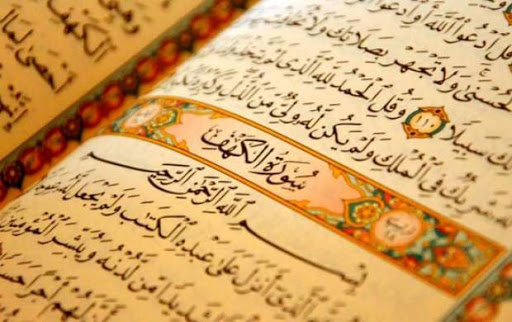 قُلِ ادْعُوا اللَّهَ أَوِ ادْعُوا
الْحُسْنَىٰ وَلَا تَجْهَرْ بِصَلَاتِكَ وَلَا
سَبِيلًا ١١٠ وَقُلِ الْحَمْدُ لِلَّهِ الَّذِي لَمْ يَتَّخِذْ
شَرِيكٌ فِي الْمُلْكِ وَلَمْ يَكُنْ لَهُ وَلِيٌّ مِنَ الذُّلِّ
سُورَةُ الْكَهْفِ
بِسْمِ اللَّهِ الرَّحْمَٰنِ الرَّحِيمِ
الَّذِي أَنْزَلَ عَلَىٰ عَبْدِهِ الْكِتَٰبَ وَلَمْ يَجْعَلْ لَهُ
شَدِيدًا مِنْ لَدُنْهُ وَيُبَشِّرَ الْمُؤْمِنِينَ
لَهُمْ أَجْرًا حَسَنًا